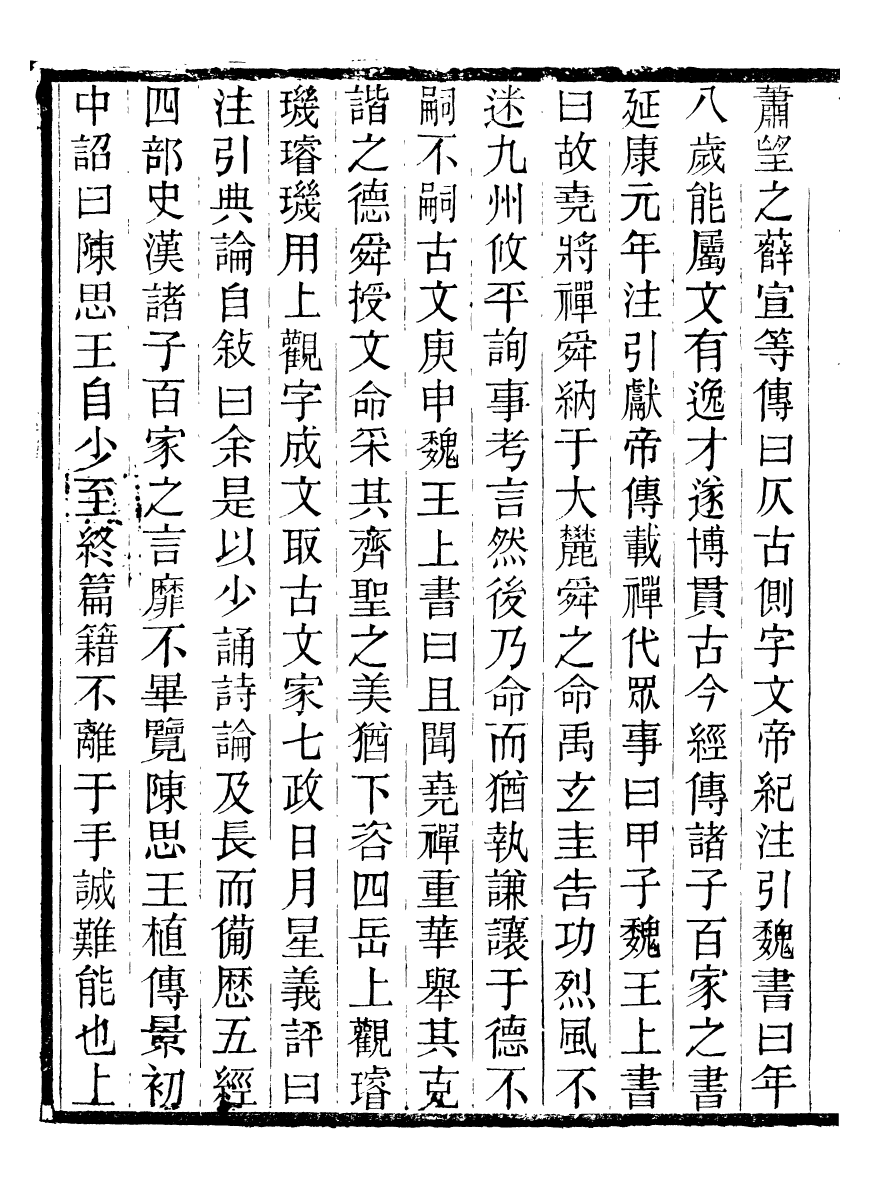 蕭望之薛宣等傳曰仄古側字文帝紀注引魏書曰年
八歲能屬文有逸才遂博貫古今經傳諸子百家之書
延康元年注引獻帝傳載禪代眾事曰甲子魏王上書
曰故堯將禪舜納于大麓舜之命禹玄圭告功烈風不
迷九州攸平詢事考言然後乃命而猶執謙讓于德不
嗣不嗣古文庚申魏王上書曰且聞堯禪重華舉其克
諧之德舜授文命采其齊聖之美猶下咨四岳上觀璿
璣璿璣用上觀字成文取古文家七政日月星義評曰
注引典論自敍曰余是以少誦詩論及長而備歷五經
四部史漢諸子百家之言靡不畢覽陳思王植傳景初
中詔曰陳思王自少至終篇籍不離于手誠難能也上